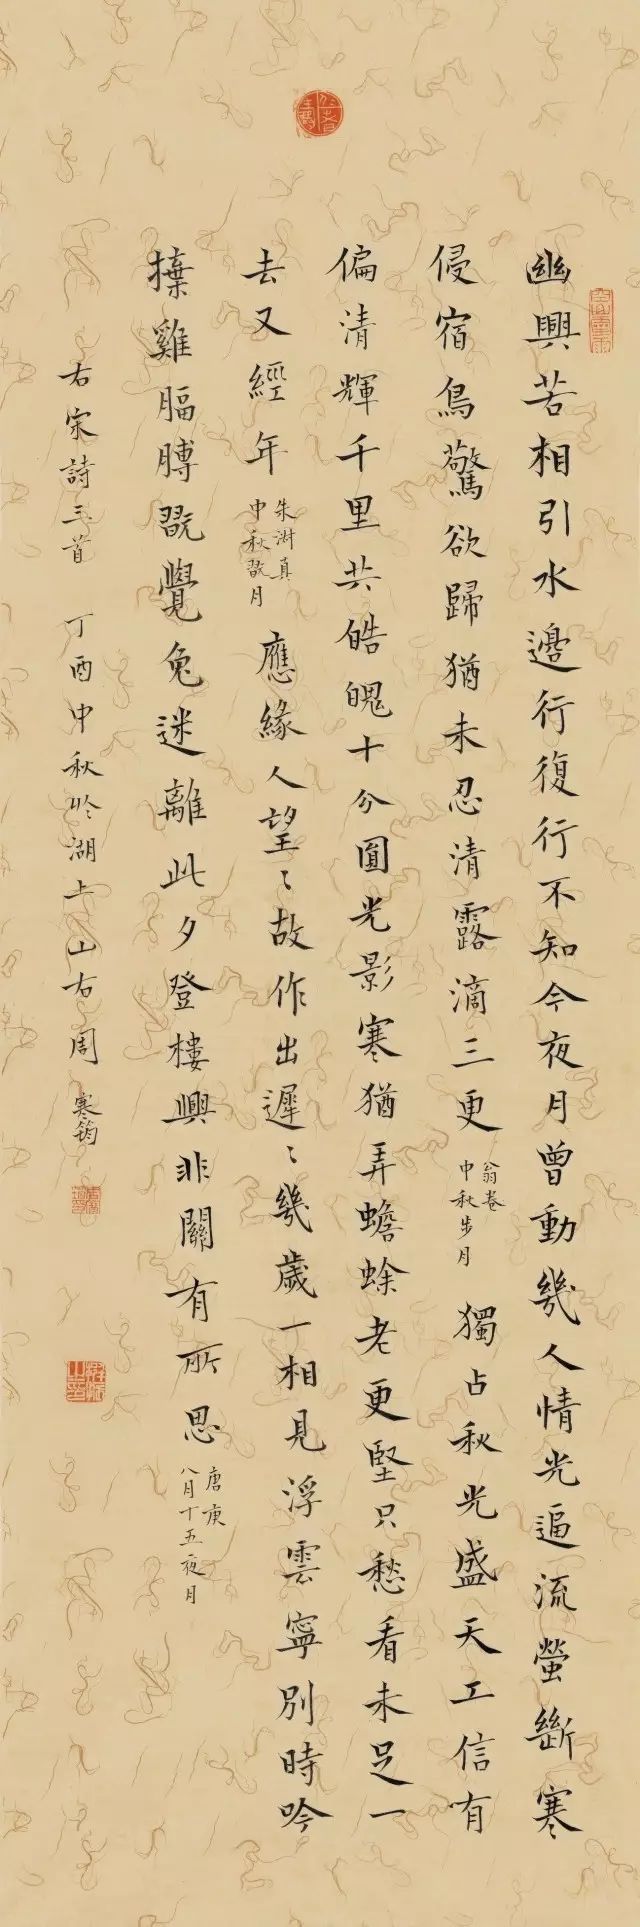 幽興若相引水邊行復行不知今夜月曾動幾人情光逼流螢斷寒
侵宿鳥驚欲歸猶未忍清露滴三更
翁卷
中秋步月
獨占秋光盛天工信有
偏清輝千里共皓魄十分圓光影寒猶弄蟾蜍老更堅只愁看未足一
去又經年
朱淑真
中秋翫月
應緣人望〻故作出遲〻幾歲一相見浮雲寧別時吟
雞腷膊翫覺兔迷離此夕登樓興非關有所思
唐庚
八月十五夜月
右宋詩三首 丁酉中秋於湖上山右周寒筠